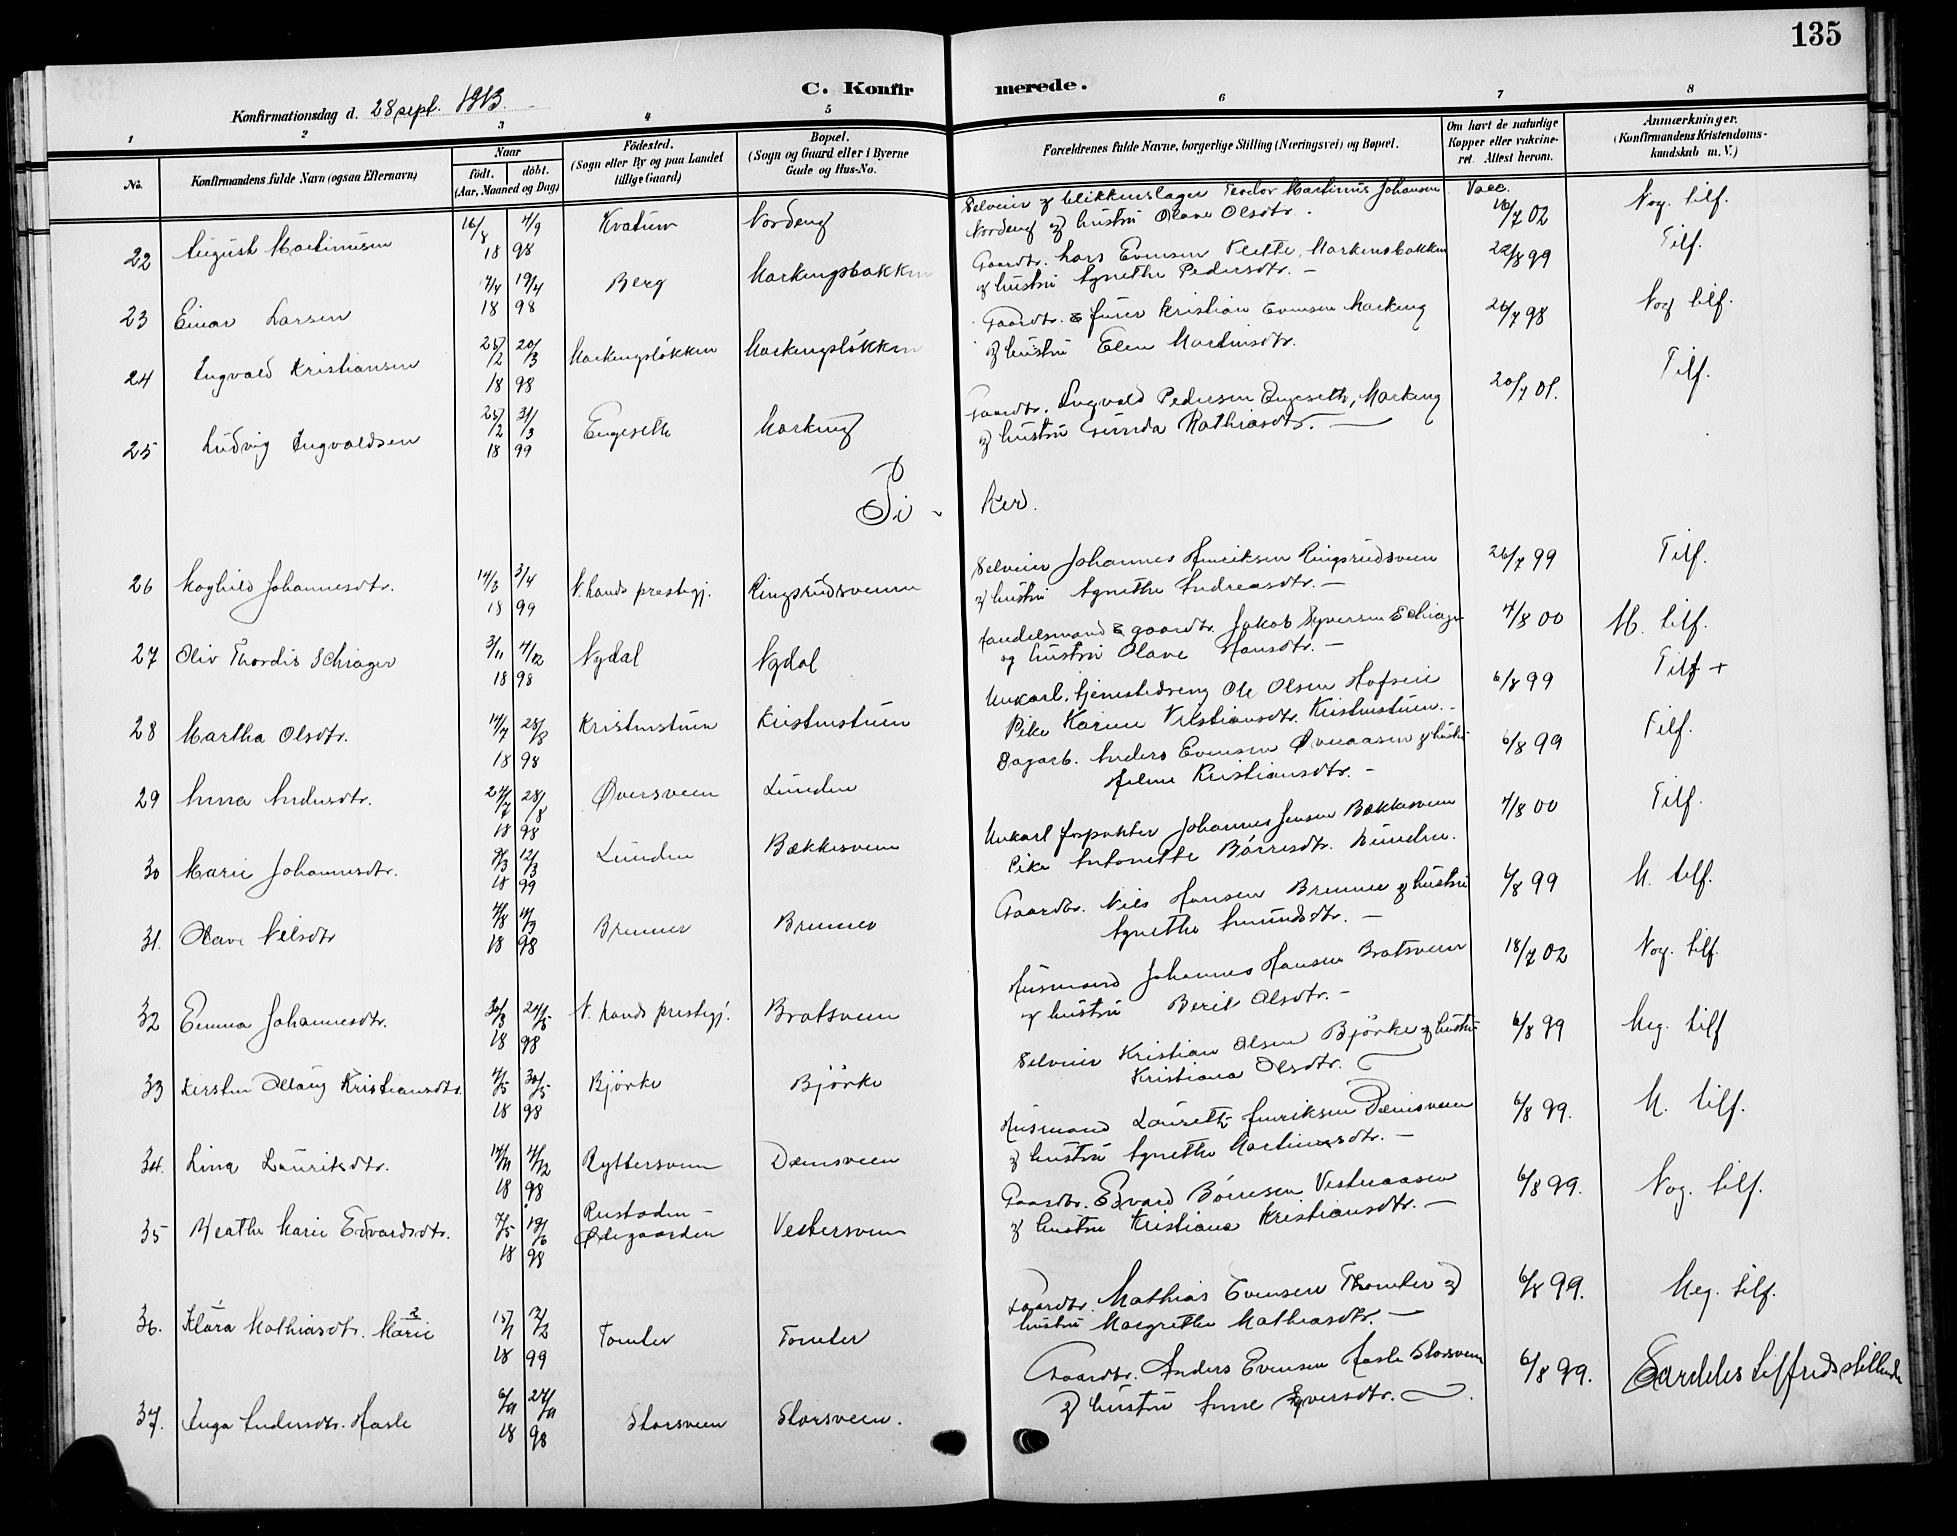 135
C. Konfirmerede.
Konfirmationsdag d. 28 sept. 1913.
1 2 3 4 5 6 7 8
No. Konfirmandens fulde Navn (ogsaa Efternavn) Naar født. døbt. (Aar, Maaned og Dag) Fødested. (Sogn eller By og paa Landet tillige Gaard) Bopæl. (Sogn og Gaard eller i Byerne Gade og Hus-No. Forældrenes fulde Navne, borgerlige Stilling (Næringsvei) og Bopæl. Om havt de naturlige Kopper eller vakcineret. Attest herom. Anmærkninger. (Konfirmandens Kristendomskundskab m. V.)
22 August Martinusen 16/8 4/9 18 98 Kvatum Nordeng Selveier og blikkenslager Teodor Martinus Johansen Nordeng og hustru Olave Olsdtr. Vacc. 18/7 02 Nog. tilf.
23 Einar Larsen 7/4 19/4 18 98 Berg Markengsbakken Gaardbr. Lars Evensen Markensbakken og hustru Agnethe Pedersdtr. – 22/8 99 Tilf.
24 Ingvald Kristiansen 25/2 20/3 18 98 Markengsløkken Markengsløkken Gaardbr. & furer Kristian Evensen Markeng og hustru Elen Martinsdtr. 26/7 98 Nog tilf.
25 Ludvig Ingvaldsen 25/2 31/3 18 99 Engeseth Markeng Gaardbr. Ingvald Pedersen Engeseth, Markeng og hustru Gunda Mathiasdtr. – 20/7 01. Tilf.
Pi - ker.
26 Moghild Johannesdtr. 14/3 3/4 18 99 N. Lands prestegj. Ringsrudsveen Selveier Johannes Henriksen Ringsrudsveen og hustru Agnethe Andreasdtr. – 26/7 99 Tilf.
27 Oliv Thordis Schiager 3/11 4/12 18 98 Nydal Nydal Handelsmand & gaardbr. Jakob Syversen Schiager og hustru Olave Hansdtr. – 7/8 00 M. tilf.
28 Martha Olsdtr. 14/7 28/8 18 98 Kristinstuen Kristinstuen Unkarl, hjemstedseng Ole Olsen Hofseie Pike Karine Kristiansdtr. Kristinstuen. 6/8 99 Tilf +
29 Anna Andersdtr. 24/7 28/8 18 98 Øversveen Lunden Dagarb. Anders Evensen Øveraasen og hustru Helene Kristiansdtr. – 6/8 99 Tilf.
30 Marie Johannesdtr. 9/3 12/3 18 99 Lunden Bækkesveen Unkarl forpakter Johannes Jensen Bækkesveen Pike Antonette Børresdtr. Lunden. 7/8 00 Tilf.
31. Olave Nilsdtr 4/8 11/9 18 98 Brenner Brenner Gaardbr. Nils Hansen Brenner og hustru Agnethe Amundsdtr. – 6/8 99 M. tilf.
32 Emma Johannesdtr. 30/3 24/5 18 98 N. Lands prestegj. Bratsveen Husmand Johannes Hansen Bratsveen og hustru Berit Olsdtr. – 18/7 02 Nog. tilf.
33 Kirsten Aslaug Kristiansdtr. 4/5 30/5 18 98 Bjørke Bjørke Selveier Kristian Olsen Bjørke og hustru Kristiana Olsdtr. 6/8 99 Meg. tilf
34. Lina Lauritsdtr. 14/11 4/12 18 98 Ryttersveen Dæmsveen Husmand Laurits Henriksen Dæmsveen og hustru Agnethe Martinusdtr. – 6/8 99. M. tilf.
35 Marie Edvardsdtr. 7/5 19/6 18 98 Rustaden - Ødegaarden Vestersveen Gaardbr. Edvard Børresen Vesteraasen og hustru Kristiane Kristiansdtr. – 6/8 99. Nog. tilf.
36. Klara Mathiasdtr. Marie 1 2 15/1 12/2 18 99 Tomter Tomter Gaardbr. Mathias Evensen Thomter og hustru Margrethe Mathiasdtr. – 6/8 99. Meg. tilf.
37. Inga Andersdtr. Hasle 6/11 27/11 18 98 Storsveen Storsveen. Gaardbr. Anders Evensen Hasle Storsveen og hustru Anne Syversdtr. 6/8 99. Særdeles tilfredsstillende